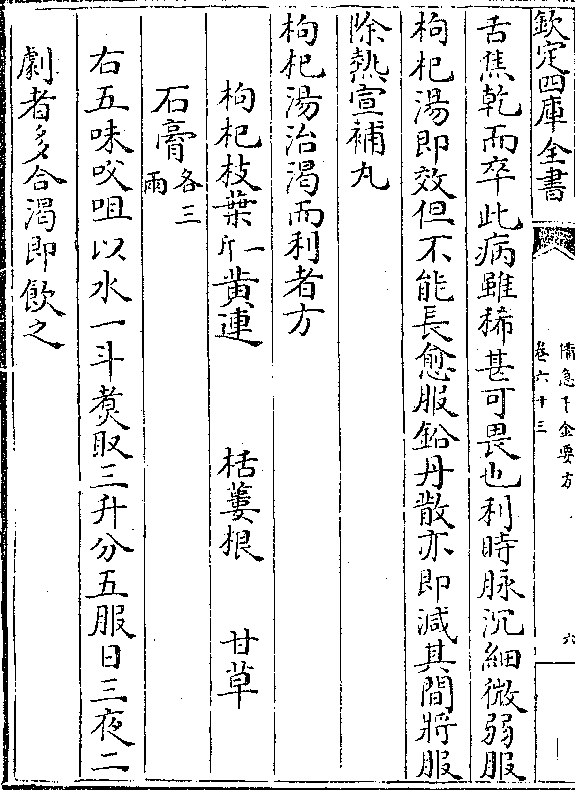 欽定四庫全書
備急千金要方
卷六十三
六
舌焦乾而卒此病雖稀甚可畏也利時脉沉細微弱服
枸杞湯即效但不能長愈服鉛丹散亦即減其間將服
除熱宣補丸
枸杞湯治渴而利者方
枸杞枝葉一斤 黄連 栝蔞根 甘草
石膏各三兩
右五味㕮咀以水一斗煑取三升分五服日三夜二
劇者多合渴即飲之